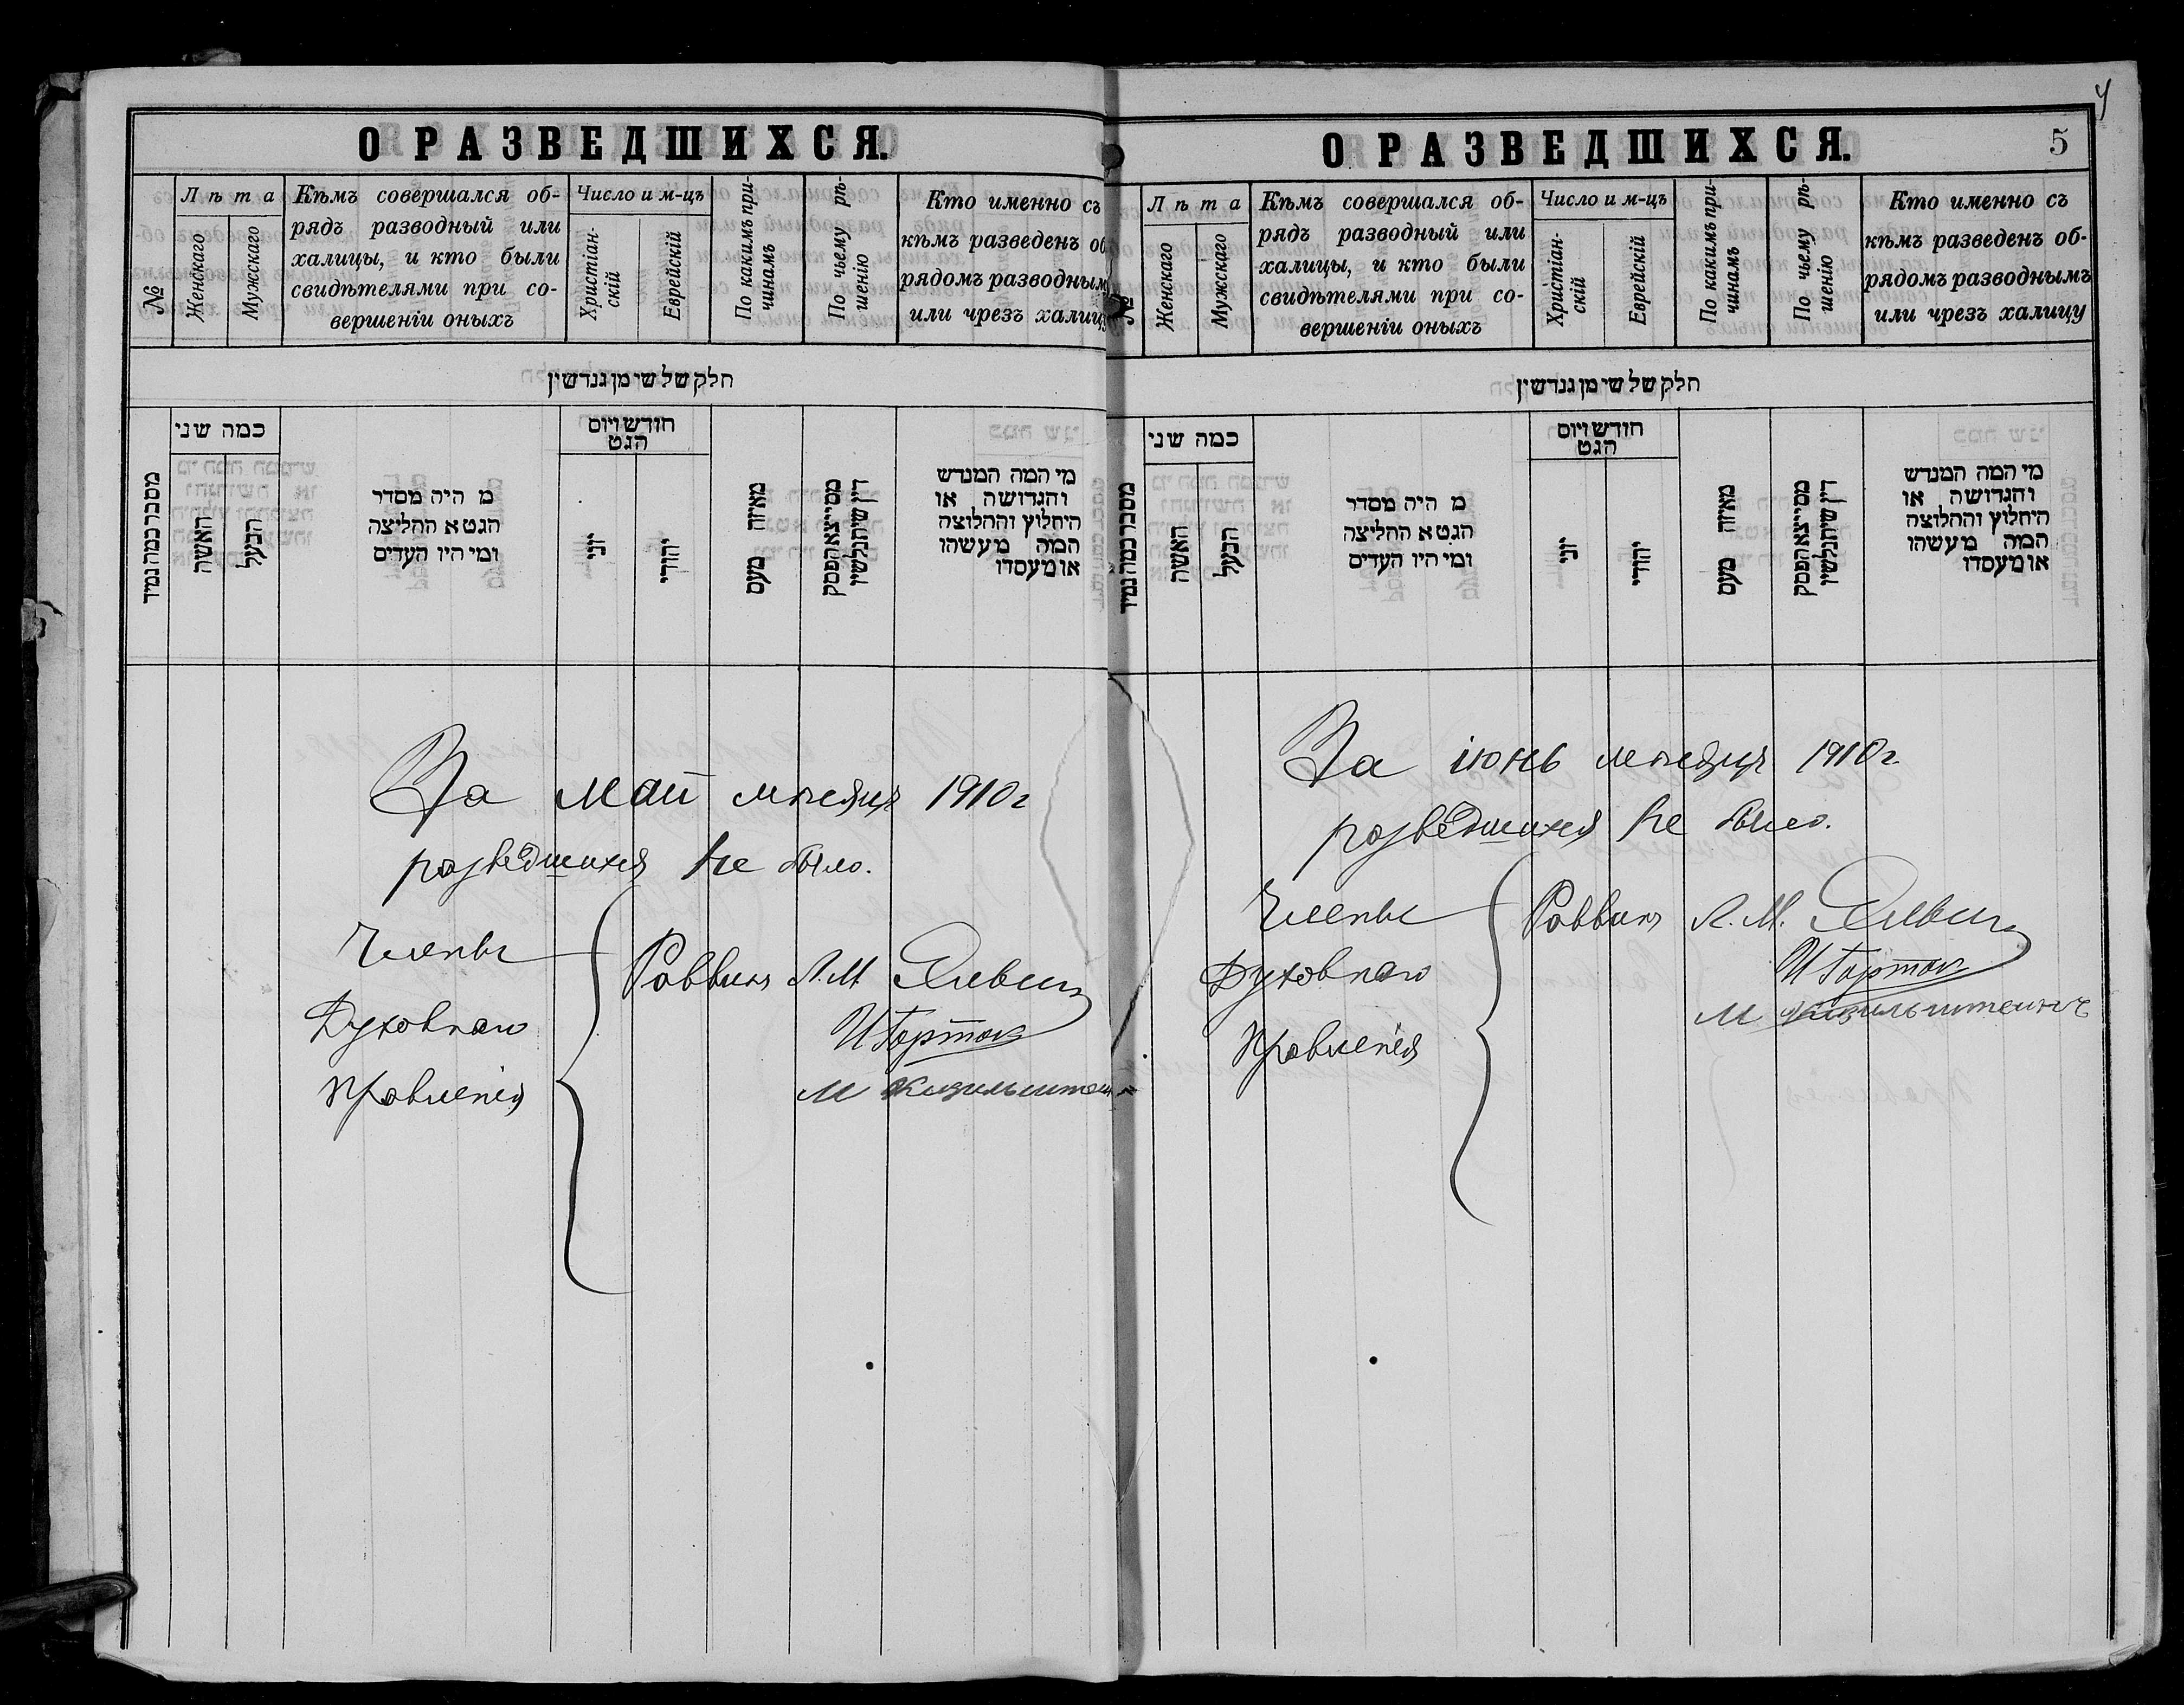 О РАЗВЕДШИХСЯ.
№
Лѣта
Женскаго
Мужскаго
Кѣмъ совершался об-
рядъ разводный или
халицы, и кто были
свидѣтелями при со-
вершеніи оныхъ
Число и м-цъ
Христіан-
скій
Еврейскій
По какимъ при-
чинамъ
По чьему рѣ-
шенію
Кто именно съ
кѣмъ разведенъ об
рядомъ разводным
или чрезъ халиц
חלק של שי מן גנדשין
כמה שני
האשה
הבעל
מ היה מסדר
הגט א החליצה
ומי היו העדים
חודש ויום
הגט
יוני
יהודי
מאיזה טעם
מי המה המגדש
והגדושה או
היחלוץ והחלוצה
המה מעשהו
או מעסדו
За май мѣсяцъ 1910 г
разведшихся не было.
Члены
Духовнаго
Правленія
Раввинъ Л. М.
И Горток
М Кизильштейн
О РАЗВЕДШИХСЯ.
5
№
Лѣта
Женскаго
Мужскаго
Кѣмъ совершался об-
рядъ разводный или
халицы, и кто были
свидѣтелями при со-
вершеніи оныхъ
Число и м-цъ
Христіан-
скій
Еврейскій
По какимъ при-
чинамъ
По чьему рѣ-
шенію
Кто именно съ
кѣмъ разведенъ об-
рядомъ разводнымъ
или чрезъ халицу
חלק של שי מן גנדשין
כמה שני
האשה
הבעל
מ היה מסדר
הגט א החליצה
ומי היו העדים
חודש ויום
הגט
יוני
יהודי
מאיזה טעם
מי המה המגדש
והגדושה או
היחלוץ והחלוצה
המה מעשהו
או מעסדו
За іюнь мѣсяцъ 1910 г.
разведшихся не было.
Члены
Духовнаго
Правленія
Раввинъ Л. М.
И Горток
М Кизильштейнъ